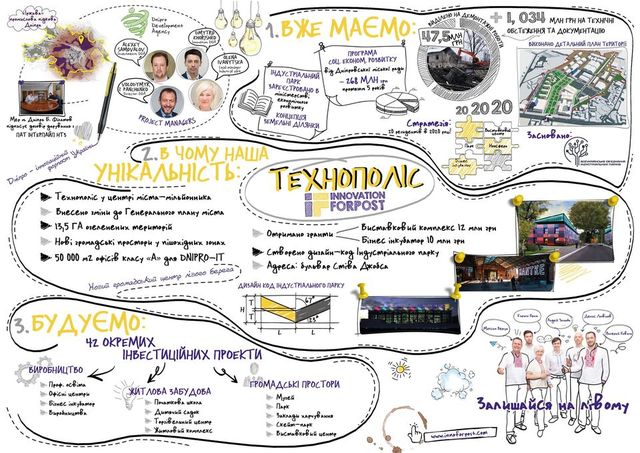 Dnipro
Development
Agency
PROJECT MANAGERS
Мер м. Дніпра Б. Філатов
ПАТ ІНТЕРПАЙП НТЗ
1. ВЖЕ МАЄМО:
ВИДІЛЕНО НА ДЕМОНТАЖНІ РОБОТИ
47,5
МЛН
ГРН
+ 1,034 МЛН ГРН НА ТЕХНІЧНІ
ОБСТЕЖЕННЯ ТА ДОКУМЕНТАЦІЮ
ВИКОНАНО ДЕТАЛЬНИЙ ПЛАН ТЕРИТОРІЇ
ПРОГРАМА
СОЦ. ЕКОНОМ. РОЗВИТКУ
ВІД Дніпровської міської ради
~ 268 МЛН грн
протягом 5 років
ІНДУСТРІАЛЬНИЙ
ПАРК
ЗАРЕЄСТРОВАНО В
міністерстві
економічного
розвитку
КОНЦЕПЦІЯ
ЗЕМЕЛЬНІ ДІЛЯНКИ
Стратегія:
20 резидентів в 2020 році
20 20 20
Парк
Засновано:
Дніпро - інноваційний
форпост України
2. В ЧОМУ НАША
УНІКАЛЬНІСТЬ:
ТЕХНОПОЛІС
INNOVATION
FORPOST
Технополіс у центрі міста-мільйонника
Внесено зміни до Генерального плану міста
13,5 ГА озеленених територій
Нові громадські простори у пішохідних зонах
50 000 м2 офісів класу «А» для DNIPRO-IT
Новий громадський центр лівого берега
Отримано гранти
Виставковий комплекс 12 млн грн
Бізнес інкубатор 10 млн грн
Створено дизайн-код Індустріального парку
Адреса: бульвар Стіва Джобса
ДИЗАЙН КОД ІНДУСТРІАЛЬНОГО ПАРКУ
H
L
3. БУДУЄМО:
42 ОКРЕМИХ
ІНВЕСТИЦІЙНИХ ПРОЕКТИ
ВИРОБНИЦТВО
Проф. освіта
Офісні центри
Бізнес інкубатор
Виробництва
ЖИТЛОВА ЗАБУДОВА
Початкова школа
Дитячий садок
Торгівельний центр
Житловий комплекс
ГРОМАДСЬКІ ПРОСТОРИ
Музей
Парк
Заклади харчування
Скейт-парк
Виставковий центр
www.innoforpost.com
Залишайся на лівому